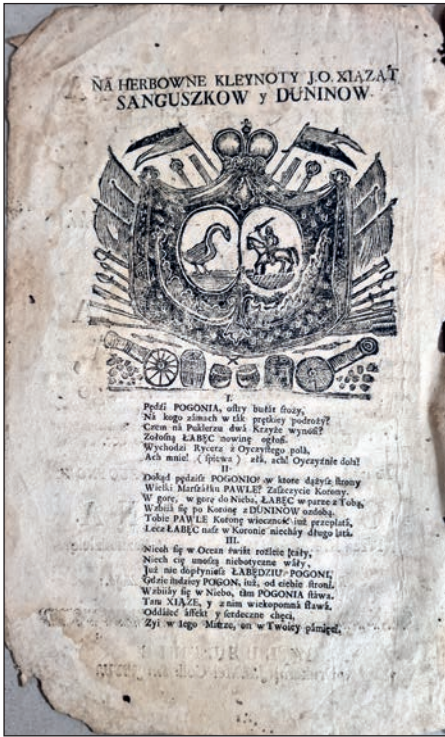 NA HERBOWNE KLEYNOTY J.O. XIĄŻĄT
SANGUSZKOW y DUNINOW
I.
Pędzi POGONIA, ostry bułat sroży,
Na kogo zámach w ták prętkiey podroży?
Czem ná Puklerzu dwá Krzyże wynosi?
Załosną ŁABĘC nowinę ogłosi.
Wychodzi Rycerz z Oyczystego polá,
Ach mnie! (spiewa) zła, ach! Oyczyźnie dola!
II
Dokąd pędzisz POGONIO? w ktore dążysz strony
Wielki Marszałku PAWLE? Zaszczycie Korony.
W gorę, w gorę do Nieba, ŁABĘC w parze z Tobą,
Wzbiia się po Koronę z DUNINOW ozdobą.
Tobie PAWLE Koronę wieczność iuż przeplatá,
Lecz ŁABĘC nasz w Koronie niecháy długo latá.
III.
Niech się w Ocean świát rozleie cáły,
Niech cię unoszą niebotyczne wáły,
Już nie dopłyniesz ŁABĘDZIU POGONI,
Gdzie indziey POGON, iuż, od ciebie stroni.
Wzbiiáy się w Niebo, tám POGONIA sławá.
Tam XIĄŻE, y z nim wiekopomná sławá.
Oddáieć áffekt y serdeczne chęci,
Żyi w Iego Mitrze, on w Twoiey pámięci.